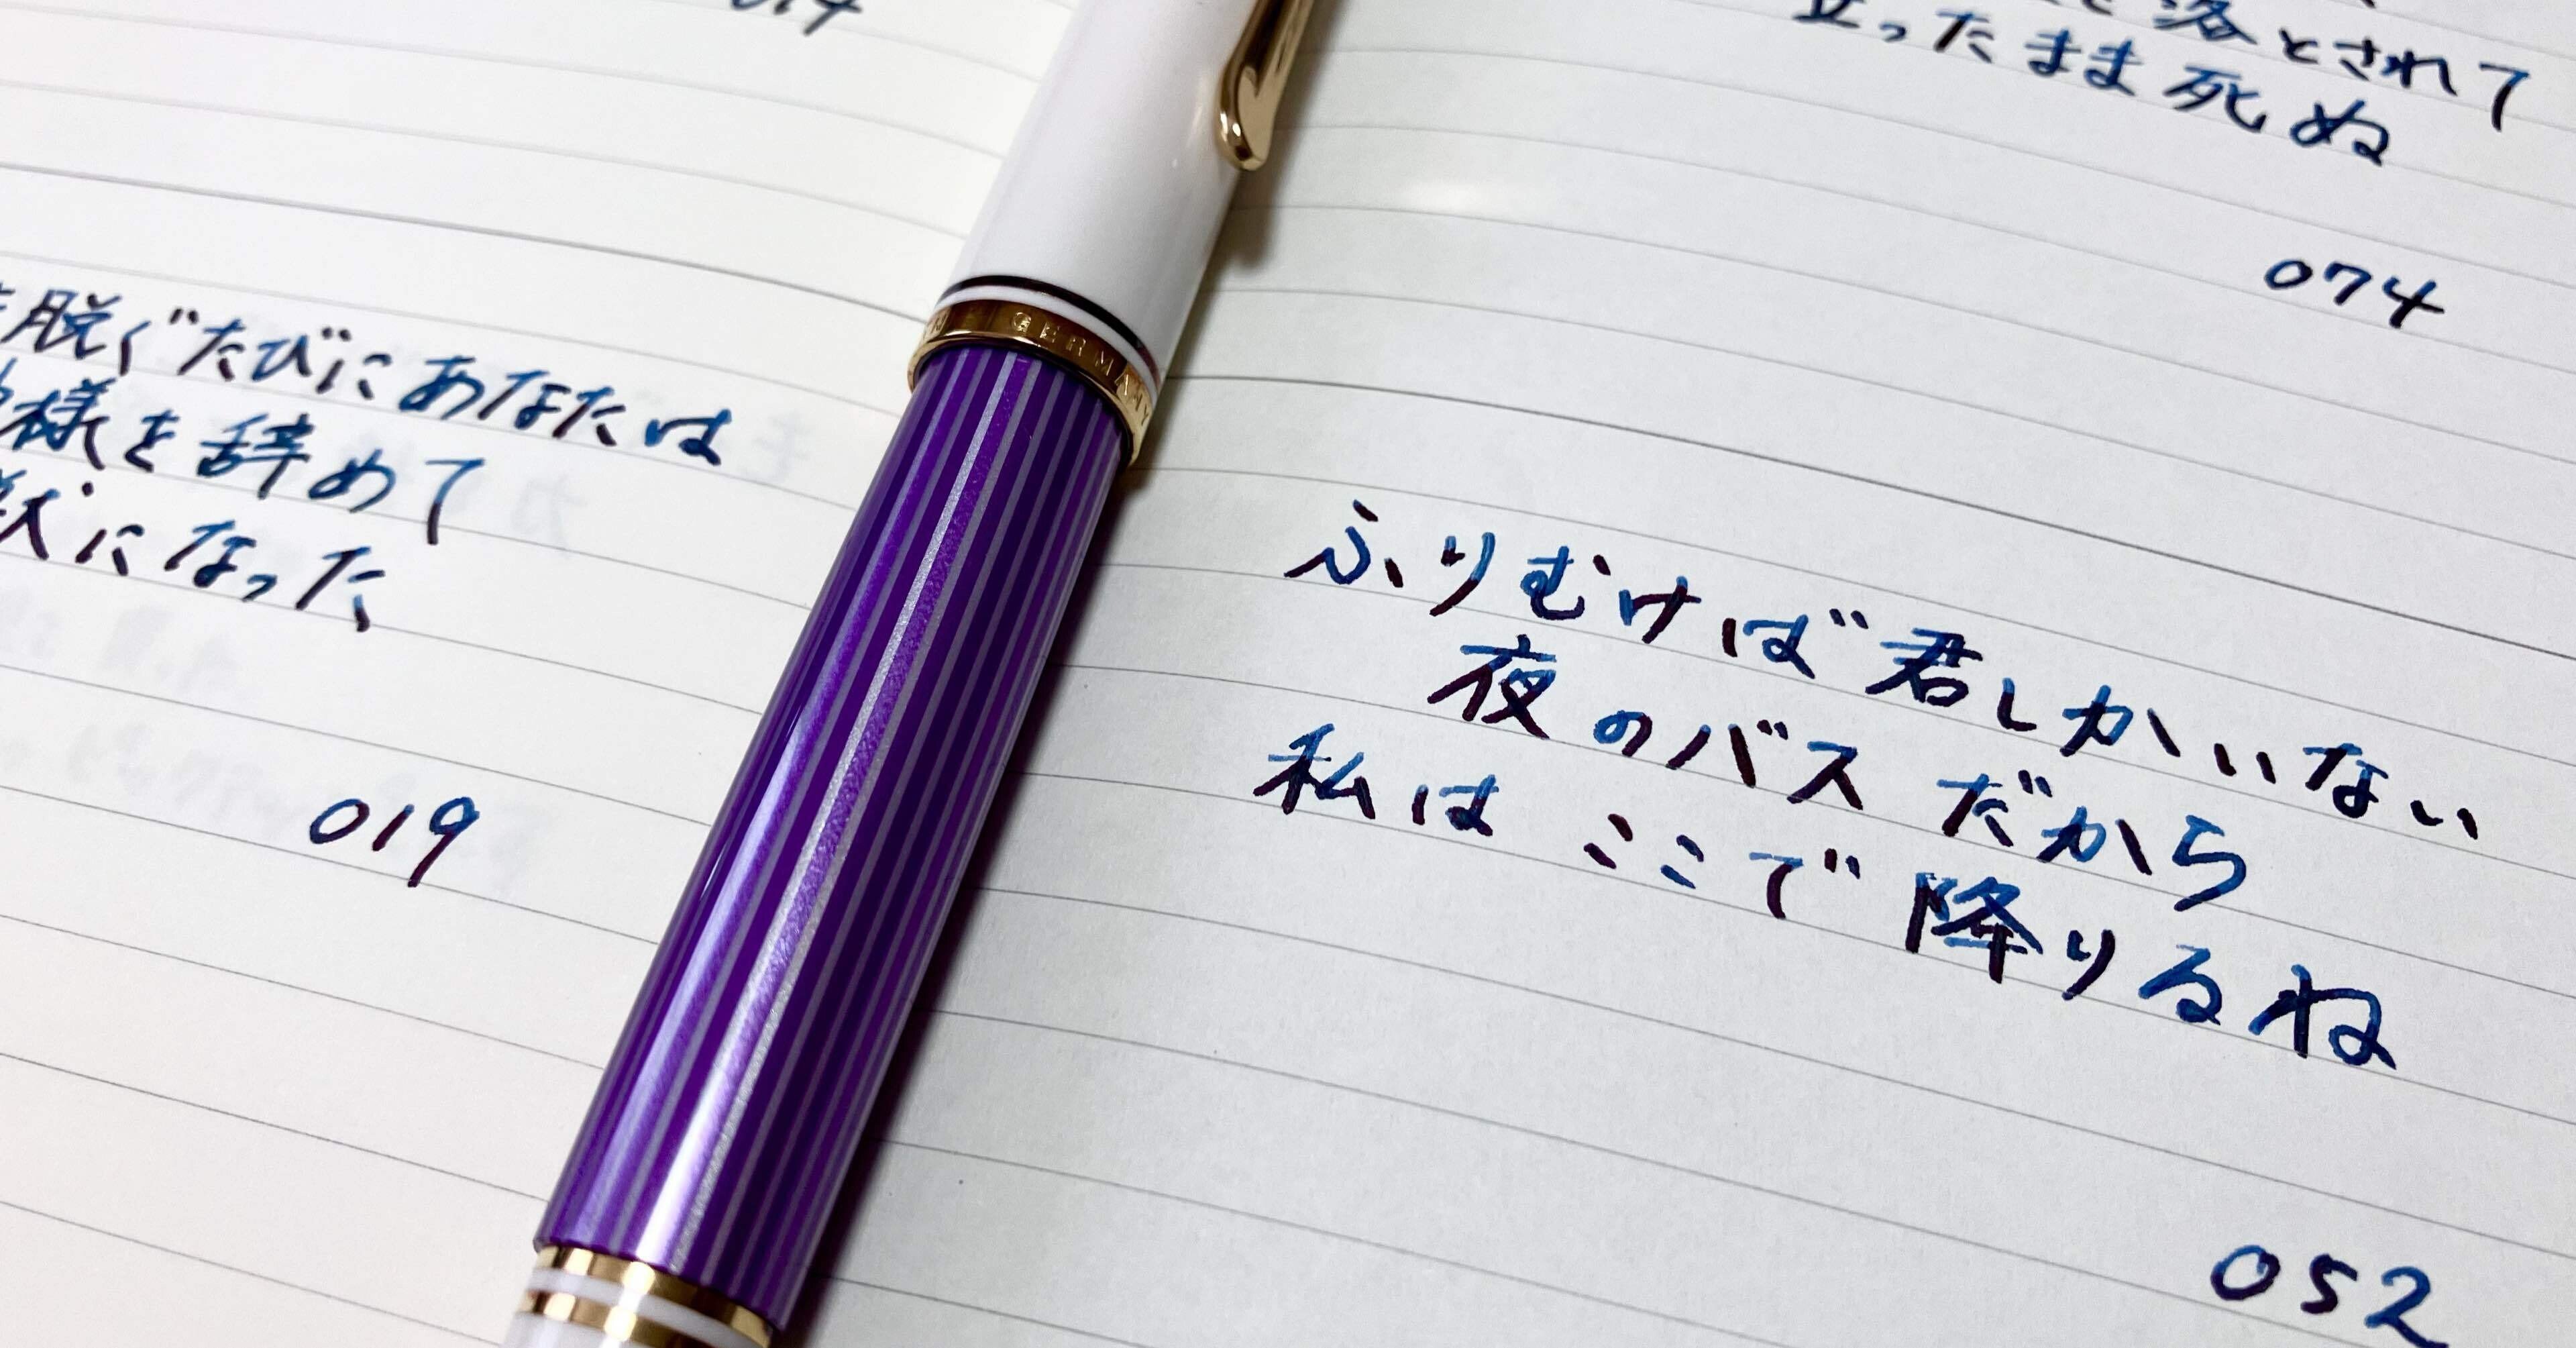 脱ぐたびにあなたは
様を辞めて
になった
019
GERMANY
と落とされて
立ったまま死ぬ
074
ふりむけば君しかいない
夜のバスだから
私はここで降りるね
052